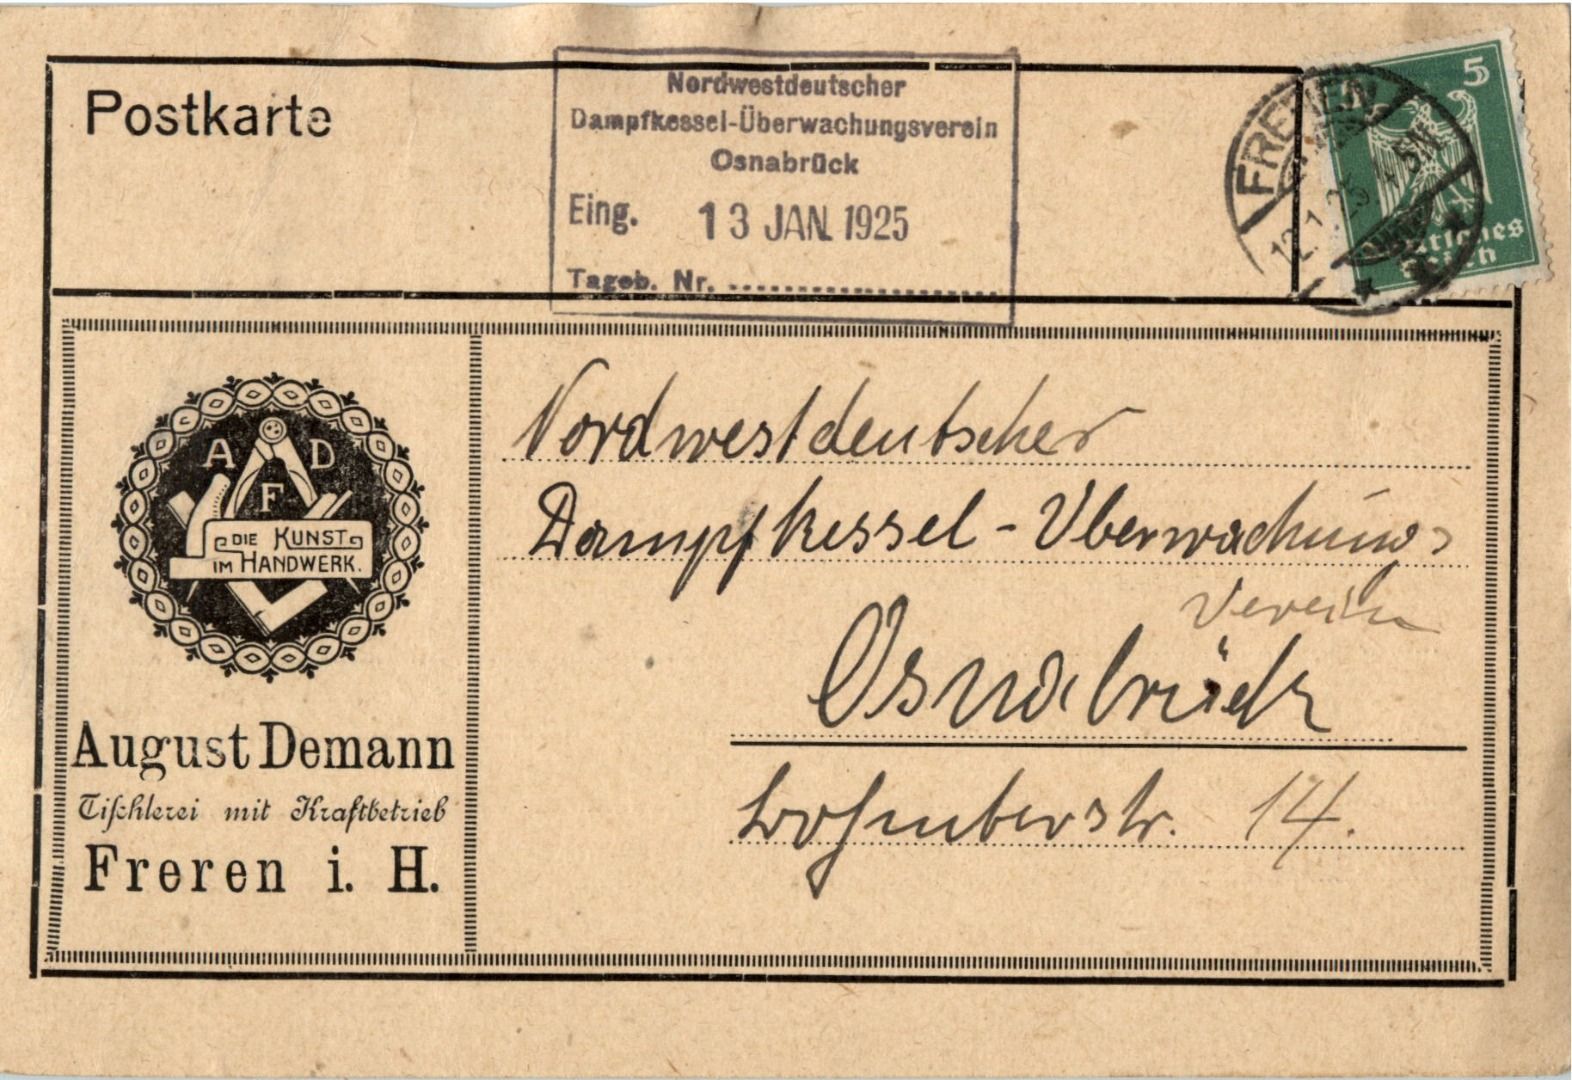 Postkarte
Nordwestdeutscher
Dampfkessel-Überwachungsverein
Osnabrück
Eing. 13 JAN. 1925
Tageb. Nr.
FREREN
12.1.25 4-5N
5
Deutsches
Reich
A D
F
DIE KUNST
IM HANDWERK.
August Demann
Tischlerei mit Kraftbetrieb
Freren i. H.
Nordwestdeutscher
Dampfkessel-Überwachungs
Verein
Osnabrück
14.